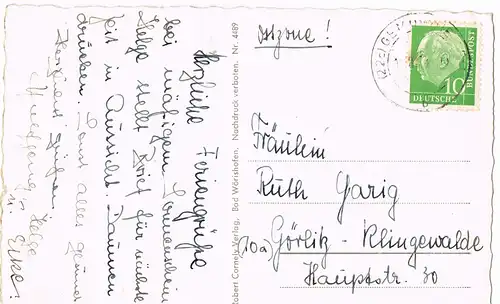 Herzliche Feriengrüße
bei mäßigem Sonnenschein
Helge stellt Brief für nächste
Zeit in Aussicht. Daumen
drücken. Sonst alles
Herzliche Grüße
Helge
u. Eike!
Robert Cornely-Verlag, Bad Wörishofen. Nachdruck verboten. Nr. 4489
Ostzone!
DEUTSCHE
BUNDESPOST
10
Fräulein
Ruth Garig
(10a) Görlitz-Klingewalde
Hauptstr. 30